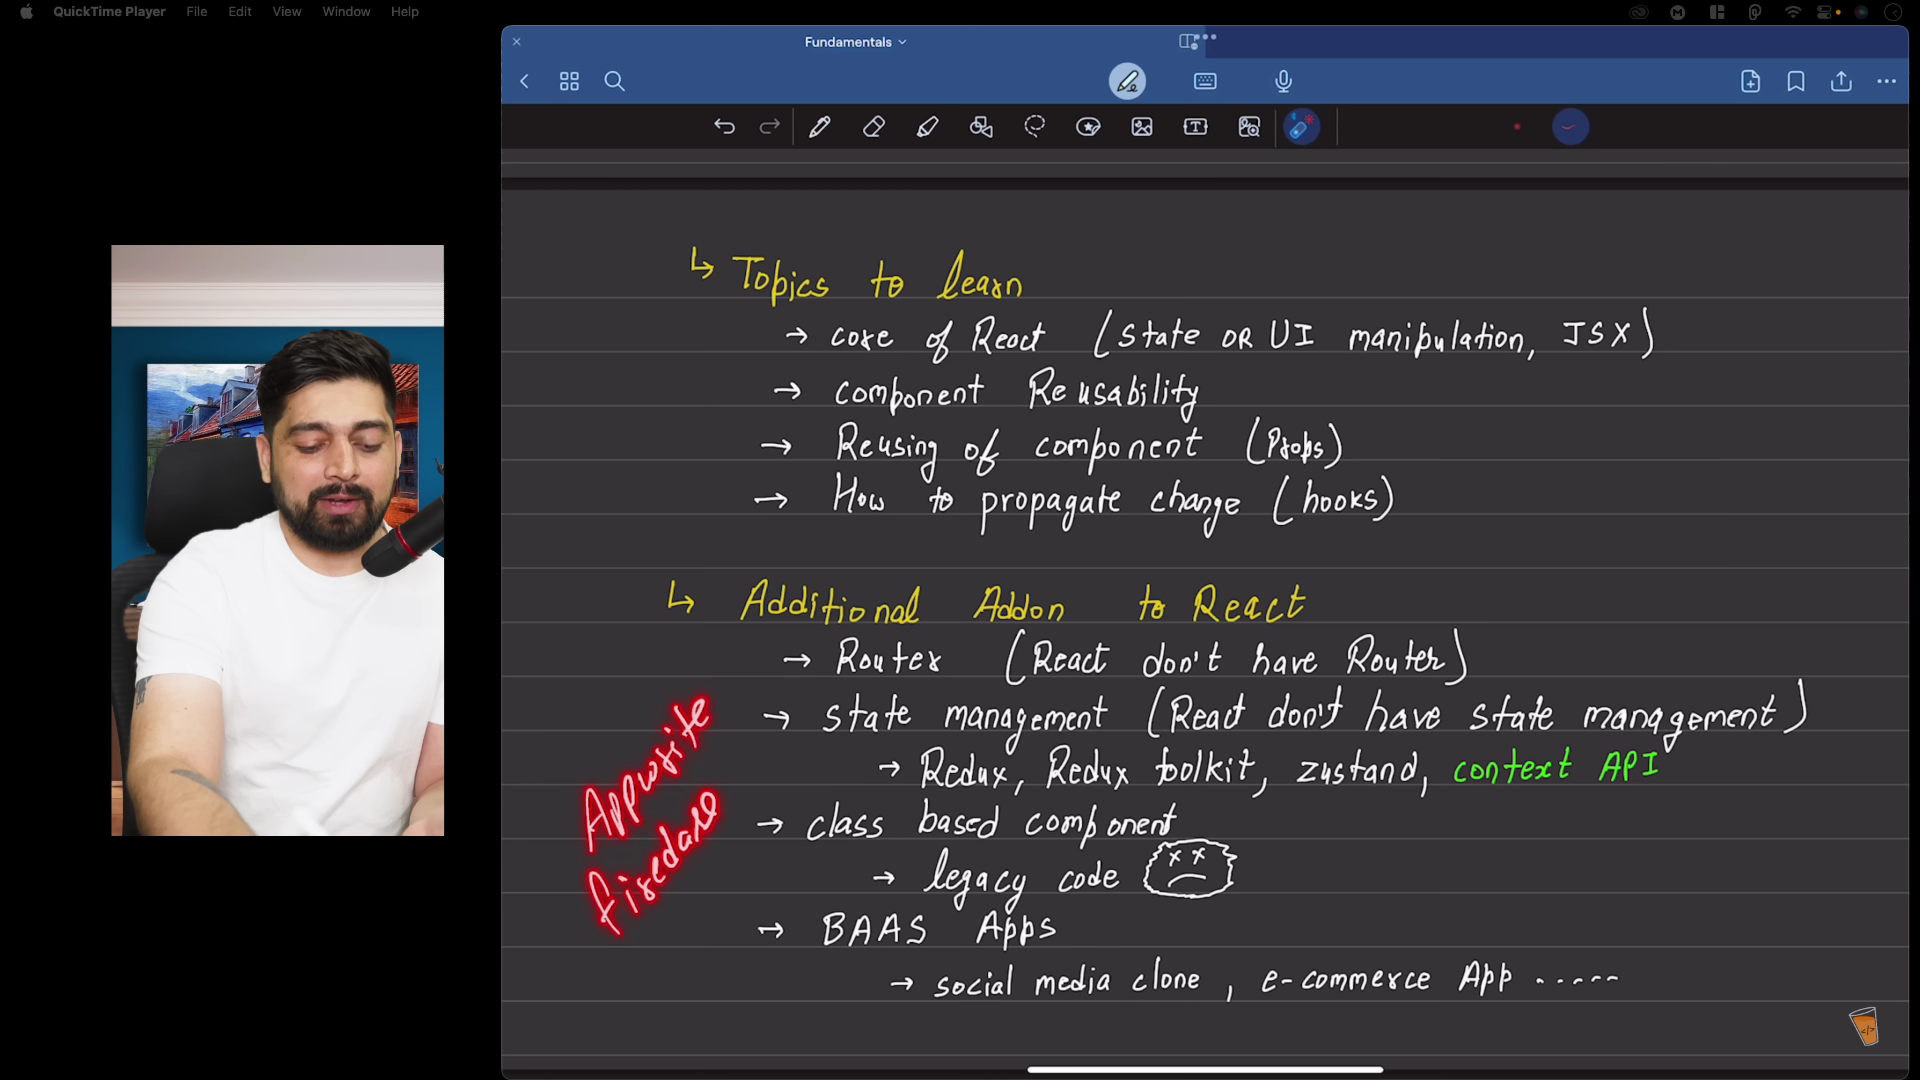 QuickTime Player File Edit View Window Help
Fundamentals
↳ Topics to learn
→ core of React (state OR UI manipulation, JSX)
→ component Reusability
→ Reusing of component (Props)
→ How to propagate change (hooks)
↳ Additional Addon to React
→ Router (React don't have Router)
→ state management (React don't have state management)
→ Redux, Redux toolkit, zustand, context API
→ class based component
→ legacy code
→ BAAS Apps
→ social media clone, e-commerce App .....
Appwrite